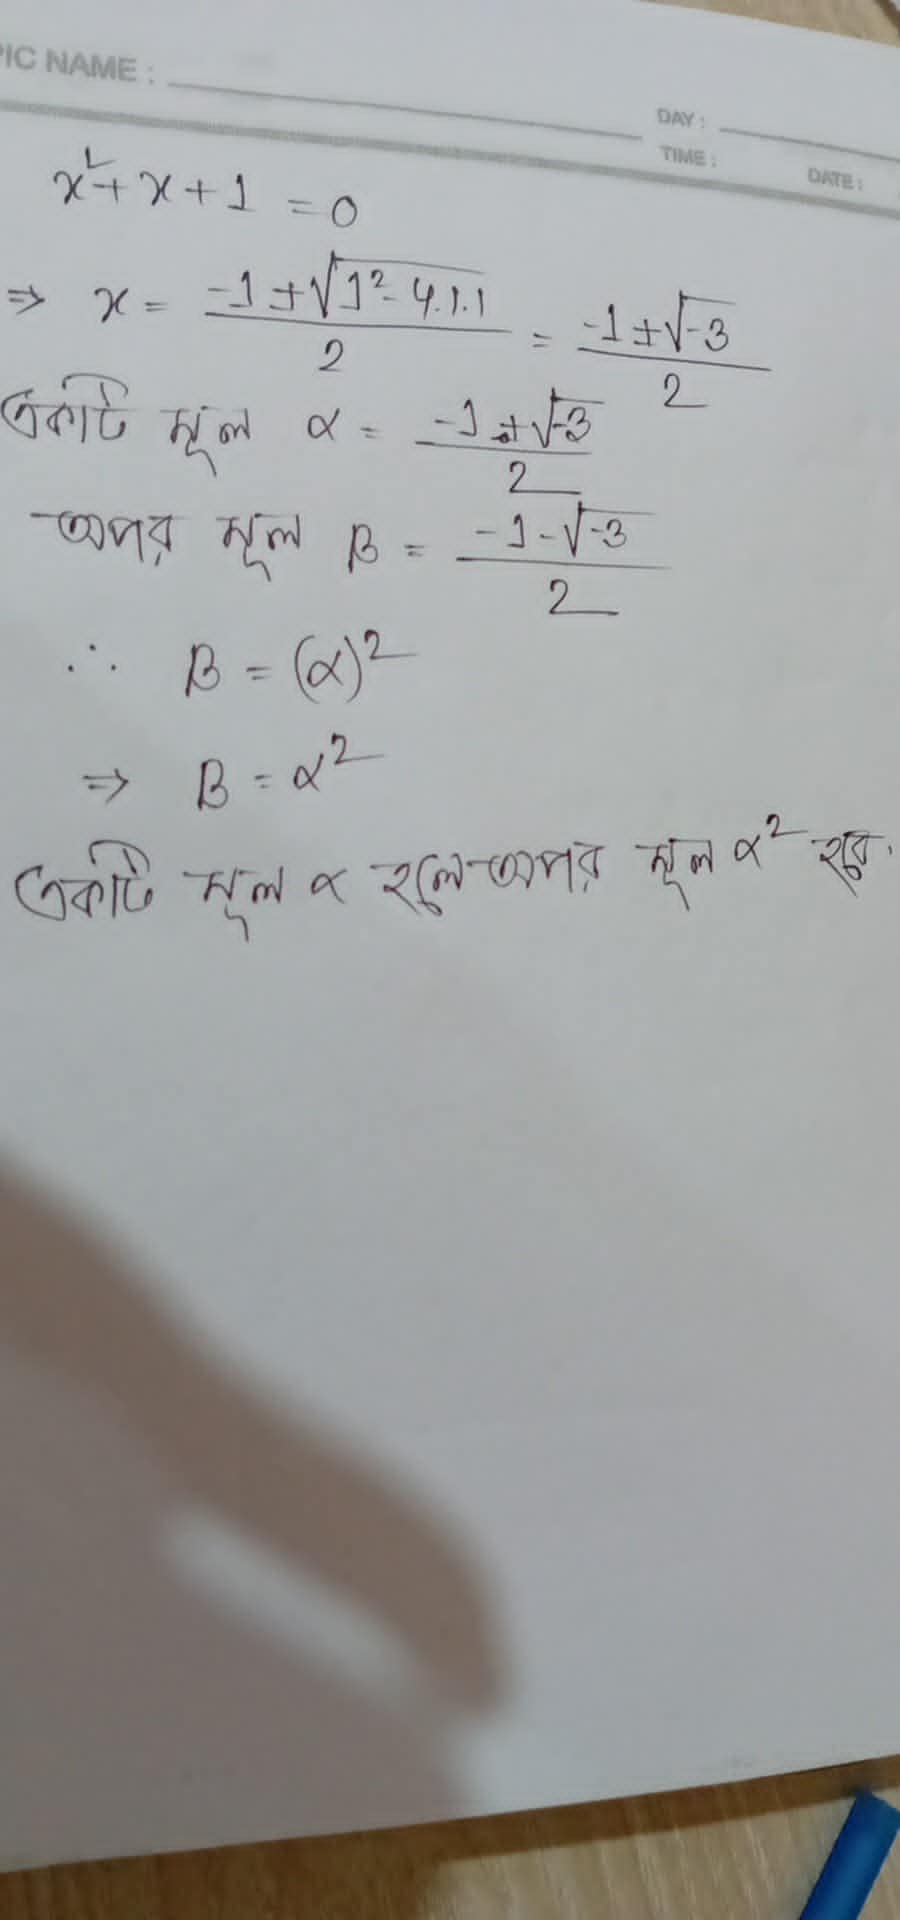 PIC NAME :
DAY :
TIME :
DATE :
x² + x + 1 = 0
⇒ x = (-1 ± √(1² - 4.1.1))/2 = (-1 ± √-3)/2
একটি মূল α = (-1 + √-3)/2
অপর মূল β = (-1 - √-3)/2
∴ β = (α)²
⇒ β = α²
একটি মূল α হলে অপর মূল α² হবে.